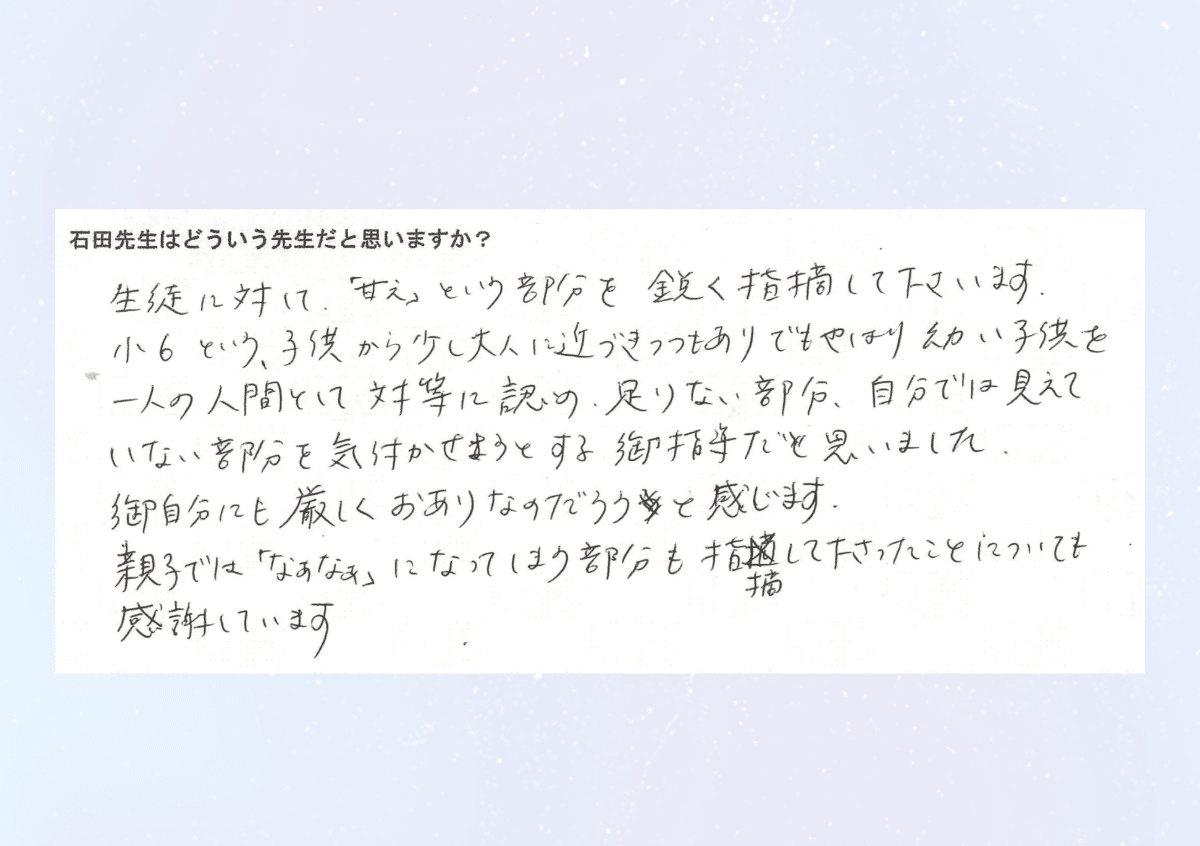 石田先生はどういう先生だと思いますか？
生徒に対して、「甘え」という部分を 鋭く指摘して下さいます.
小6という、子供から少し大人に近づきつつもありでもやはり幼い子供を
一人の人間として対等に認め、足りない部分、自分では見えて
いない部分を気付かせようとする御指導だと思いました.
御自分にも厳しくおありなのだろうと感じます.
親子では「なぁなぁ」になってしまう部分も指摘して下さったことについても
感謝しています